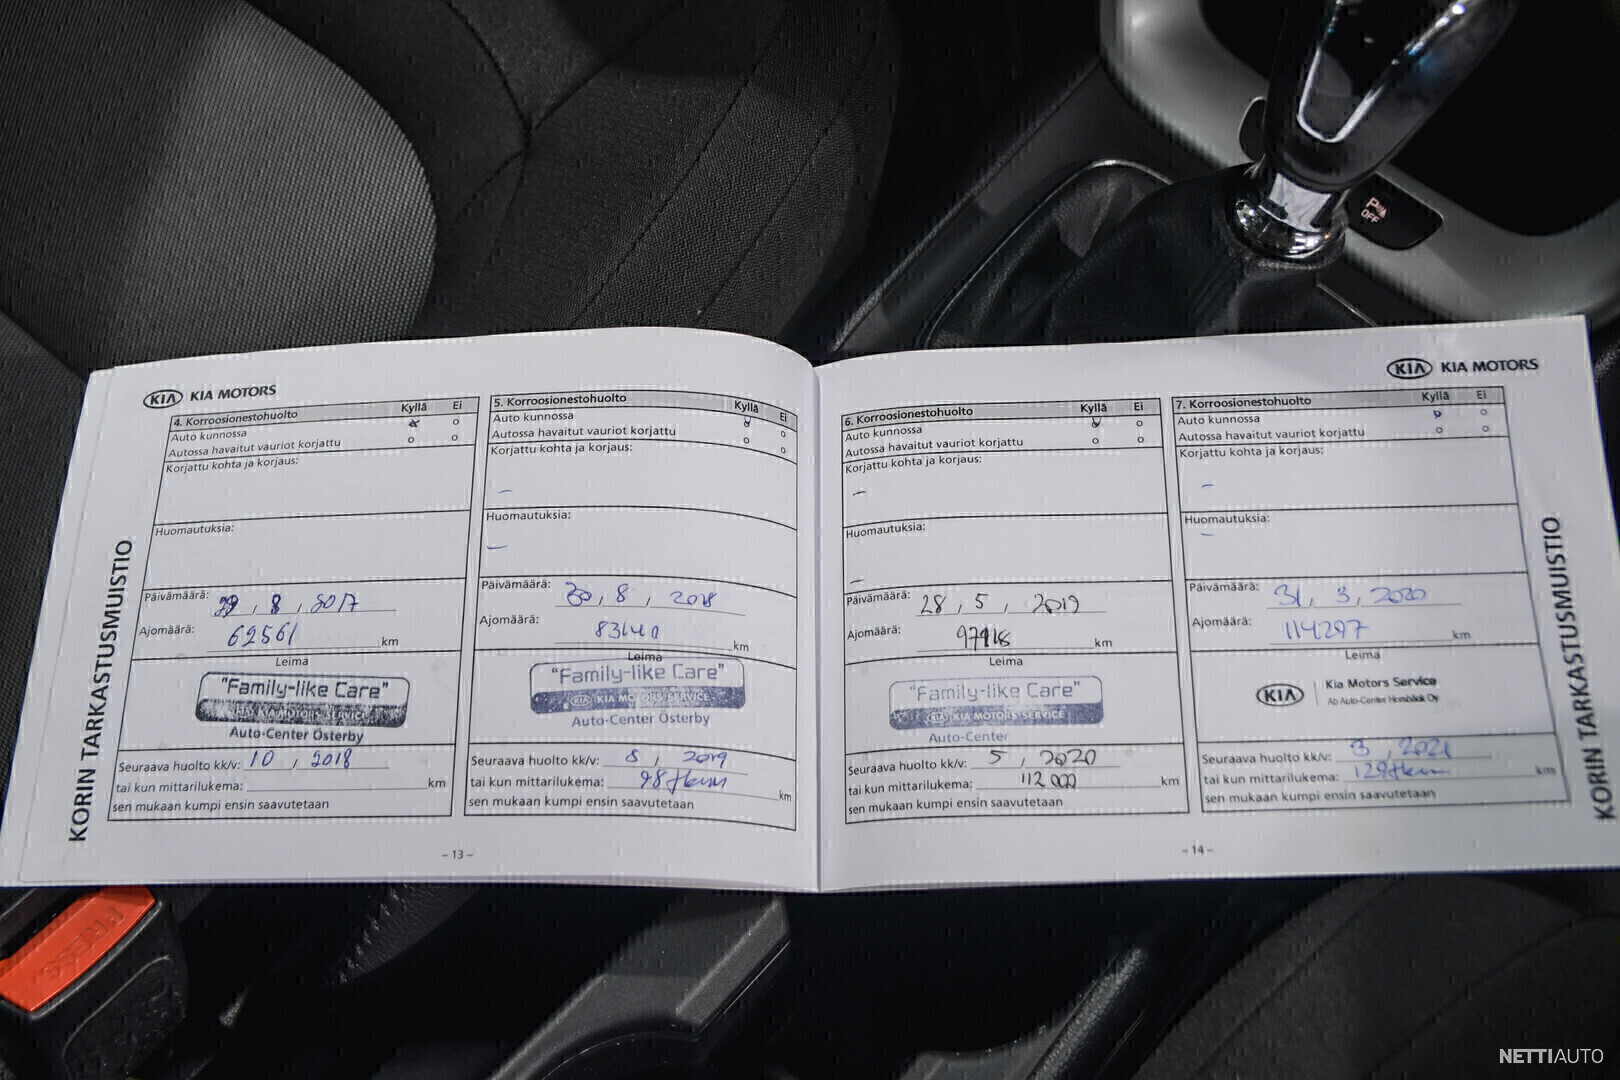 KIA KIA MOTORS
KORIN TARKASTUSMUISTIO
4. Korroosionestohuolto Kyllä Ei
Auto kunnossa
Autossa havaitut vauriot korjattu
Korjattu kohta ja korjaus:
Huomautuksia:
Päivämäärä: 29, 8, 2017
Ajomäärä: 62561 km
Leima
"Family-like Care"
KIA KIA MOTORS SERVICE
Auto-Center Österby
Seuraava huolto kk/v: 10, 2018
tai kun mittarilukema: km
sen mukaan kumpi ensin saavutetaan
5. Korroosionestohuolto Kyllä Ei
Auto kunnossa
Autossa havaitut vauriot korjattu
Korjattu kohta ja korjaus:
–
Huomautuksia:
–
Päivämäärä: 30, 8, 2018
Ajomäärä: 83140 km
Leima
"Family-like Care"
KIA KIA MOTORS SERVICE
Auto-Center Österby
Seuraava huolto kk/v: 8, 2019
tai kun mittarilukema: 98tkm km
sen mukaan kumpi ensin saavutetaan
– 13 –
KIA KIA MOTORS
6. Korroosionestohuolto Kyllä Ei
Auto kunnossa
Autossa havaitut vauriot korjattu
Korjattu kohta ja korjaus:
–
Huomautuksia:
–
Päivämäärä: 28, 5, 2019
Ajomäärä: km
Leima
"Family-like Care"
KIA KIA MOTORS SERVICE
Auto-Center
Seuraava huolto kk/v: 5, 2020
tai kun mittarilukema: 112 000 km
sen mukaan kumpi ensin saavutetaan
7. Korroosionestohuolto Kyllä Ei
Auto kunnossa
Autossa havaitut vauriot korjattu
Korjattu kohta ja korjaus:
–
Huomautuksia:
–
Päivämäärä: 31, 3, 2020
Ajomäärä: 114297 km
Leima
KIA Kia Motors Service
Ab Auto-Center Horsbäck Oy
Seuraava huolto kk/v: 3, 2021
tai kun mittarilukema: 129tkm km
sen mukaan kumpi ensin saavutetaan
– 14 –
KORIN TARKASTUSMUISTIO
OFF
PRESS
NETTIAUTO